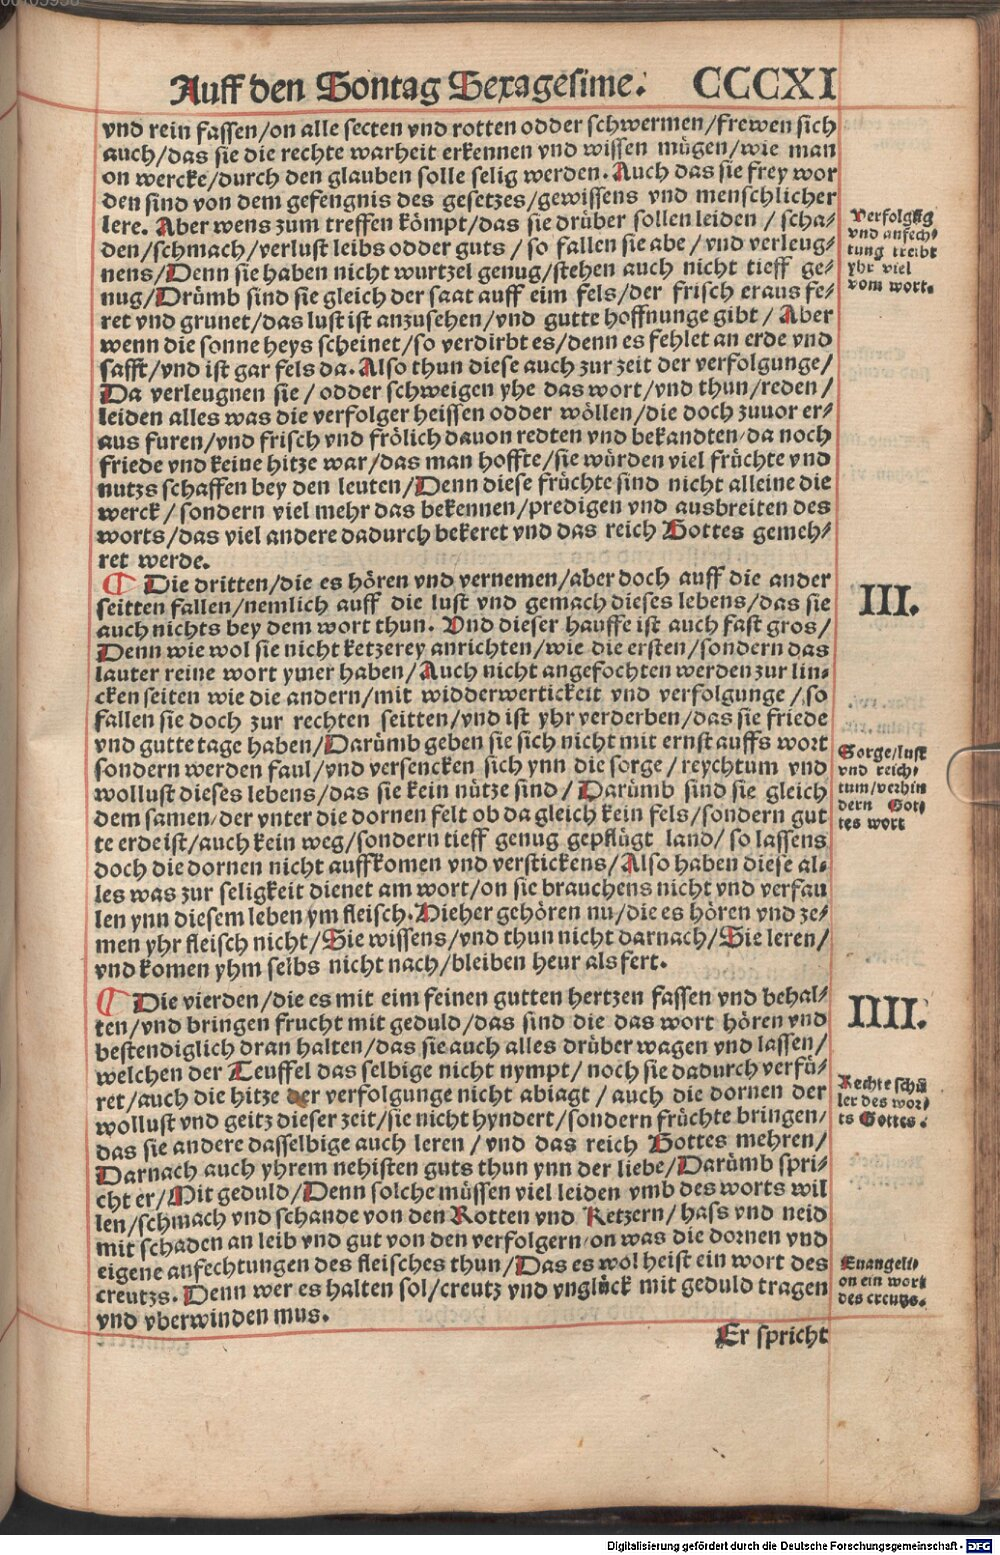 Auff den Sontag Sexagesime. CCCXI
vnd rein fassen/on alle secten vnd rotten odder schwermen/frewen sich
auch/das sie die rechte warheit erkennen vnd wissen mügen/wie man
on wercke/durch den glauben solle selig werden. Auch das sie frey wor
den sind von dem gefengnis des gesetzes/gewissens vnd menschlicher
lere. Aber wens zum treffen kömpt/das sie drüber sollen leiden / scha⸗
den/schmach/verlust leibs odder guts / so fallen sie abe / vnd verleug⸗
nens/Denn sie haben nicht wurtzel genug/stehen auch nicht tieff ge⸗
nug/Drümb sind sie gleich der saat auff eim fels/der frisch eraus fe⸗
ret vnd grunet/das lust ist anzusehen/vnd gutte hoffnunge gibt / Aber
wenn die sonne heys scheinet/so verdirbt es/denn es fehlet an erde vnd
safft/vnd ist gar fels da. Also thun diese auch zur zeit der verfolgunge/
Da verleugnen sie / odder schweigen yhe das wort/vnd thun/reden/
leiden alles was die verfolger heissen odder wöllen/die doch zuuor er⸗
aus furen/vnd frisch vnd frölich dauon redten vnd bekandten/da noch
friede vnd keine hitze war/das man hoffte/sie würden viel früchte vnd
nutzs schaffen bey den leuten/Denn diese früchte sind nicht alleine die
werck/sondern viel mehr das bekennen/predigen vnd ausbreiten des
worts/das viel andere dadurch bekeret vnd das reich Gottes gemeh⸗
ret werde.
Verfolgūg
vnd anfech⸗
tung treibt
yhr viel
vom wort.
¶ Die dritten/die es hören vnd vernemen/aber doch auff die ander
seitten fallen/nemlich auff die lust vnd gemach dieses lebens/das sie
auch nichts bey dem wort thun. Vnd dieser hauffe ist auch fast gros/
Denn wie wol sie nicht ketzerey anrichten/wie die ersten/sondern das
lauter reine wort ymer haben/Auch nicht angefochten werden zur lin⸗
cken seiten wie die andern/mit widderwertickeit vnd verfolgunge/so
fallen sie doch zur rechten seitten/vnd ist yhr verderben/das sie friede
vnd gutte tage haben/Darümb geben sie sich nicht mit ernst auffs wort
sondern werden faul/vnd versencken sich ynn die sorge/reychtum vnd
wollust dieses lebens/das sie kein nütze sind/Darümb sind sie gleich
dem samen/der vnter die dornen felt ob da gleich kein fels/sondern gut
te erde ist/auch kein weg/sondern tieff genug gepflügt land/so lassens
doch die dornen nicht auffkomen vnd verstickens/Also haben diese al⸗
les was zur seligkeit dienet am wort/on sie brauchens nicht vnd verfau
len ynn diesem leben ym fleisch. Hieher gehören nu/die es hören vnd ze⸗
men yhr fleisch nicht/Sie wissens/vnd thun nicht darnach/Sie leren/
vnd komen yhm selbs nicht nach/bleiben heur als fert.
III.
Sorge/lust
vnd reich⸗
tum/verhin
dern Got⸗
tes wort
¶ Die vierden/die es mit eim feinen gutten hertzen fassen vnd behal⸗
ten/vnd bringen frucht mit geduld/das sind die das wort hören vnd
bestendiglich dran halten/das sie auch alles drüber wagen vnd lassen/
welchen der Teuffel das selbige nicht nympt/noch sie dadurch verfü⸗
ret/auch die hitze der verfolgunge nicht abiagt / auch die dornen der
wollust vnd geitz dieser zeit/sie nicht hyndert/sondern früchte bringen/
das sie andere dasselbige auch leren / vnd das reich Gottes mehren/
Darnach auch yhrem nehisten guts thun ynn der liebe/Darümb spri⸗
cht er/Mit geduld/Denn solche müssen viel leiden vmb des worts wil
len/schmach vnd schande von den Rotten vnd Ketzern/hass vnd neid
mit schaden an leib vnd gut von den verfolgern/on was die dornen vnd
eigene anfechtungen des fleisches thun/Das es wol heist ein wort des
creutzs. Denn wer es halten sol/creutz vnd vnglück mit geduld tragen
vnd vberwinden mus.
IIII.
Rechte schü
ler des wor⸗
ts Gottes.
Euangeli⸗
on ein wort
des creutzs.
Er spricht
Digitalisierung gefördert durch die Deutsche Forschungsgemeinschaft - DFG